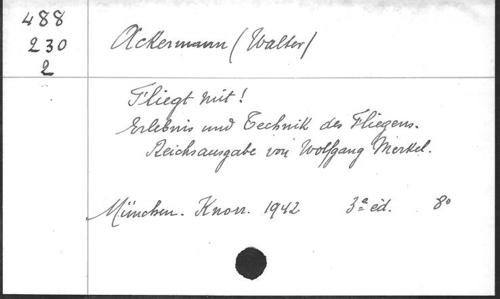 488
230
2
Ackermann (Walter)
Fliegt mit!
Erlebnis und Technik des Fliegens.
Reichsausgabe von Wolfgang Merkel.
München. Knorr. 1942 3ᵉ éd. 8º